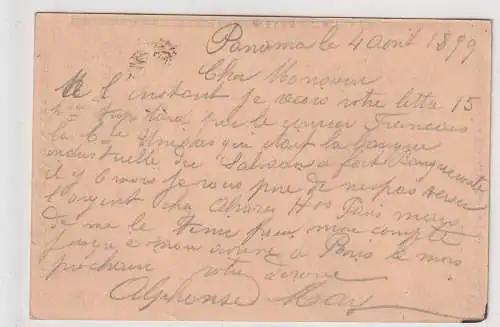 Panama le 4 aout 1899
Cher Monsieur
A l'instant je recois votre lettre 15
par le courrier Francais
la Cie que dont la banque
industrielle de a fait Banqueroute
il y 6 mois je vous prie de ne pas verser
l'argent chez Alvarez Hos Paris mais
de me le tenir pour mon compte
jusqu'a mon arrivee a Paris le mois
prochain votre devoue
Alphonse